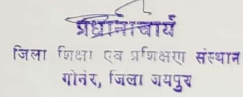 प्रधानाचार्य
जिला शिक्षा एव प्रशिक्षण संस्थान
गोनेर, जिला जयपुर